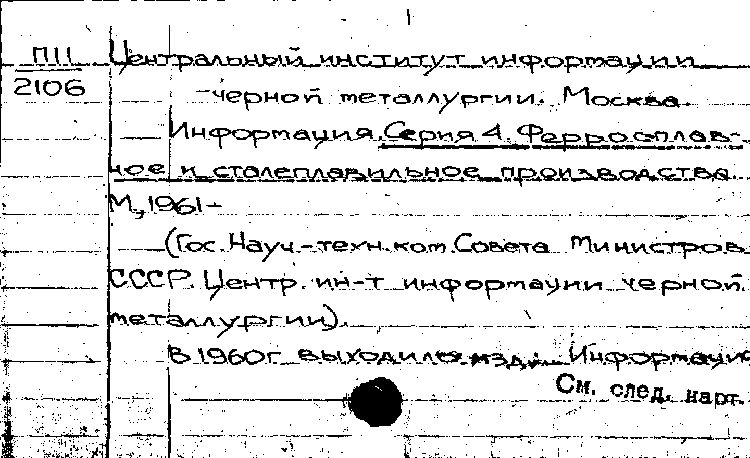 1
П11 Центральный институт информации
2106 черной металлургии. Москва.
Информация. Серия 4. Ферросплав-
ное и сталеплавильное производства
М., 1961-
(Гос. Науч.-техн. ком. Совета Министров
СССР. Центр. ин-т информации черной
металлургии).
В 1960г выходило изд.: Информация
См. след. карт.